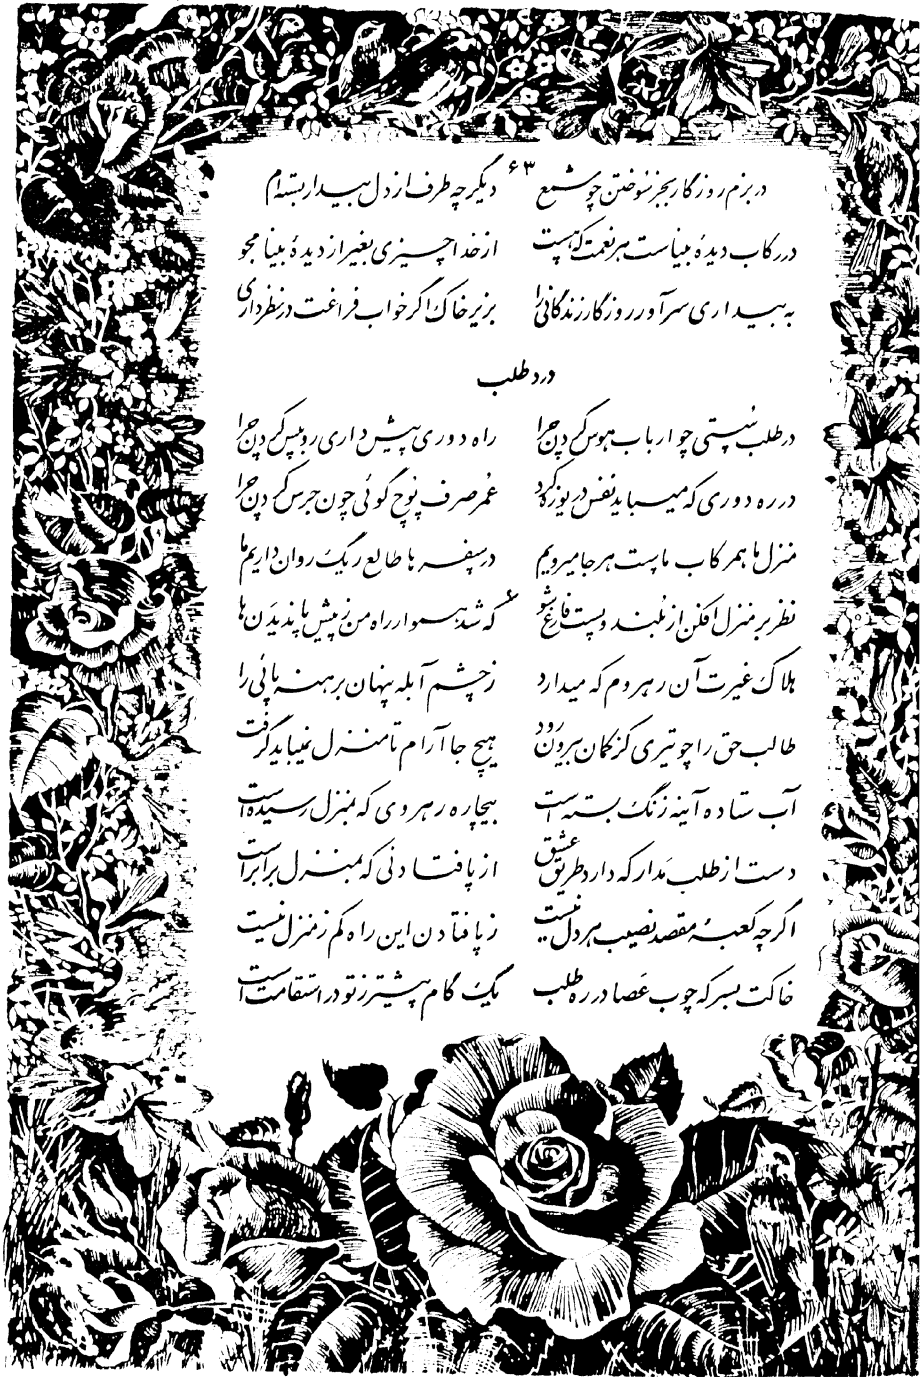 ۶۳
در بزم روزگار بجز سوختن چو شمع دیگر چه طرف از دل بیدار بسته‌ام
در رکاب دیدهٔ بیناست هر نعمت که هست از خدا چیزی بغیر از دیدهٔ بینا مجو
به بیداری سرآور روزگار زندگانی را بزیر خاک اگر خواب فراغت در نظر داری
درد طلب
در طلب سستی چو ارباب هوس کردن چرا راه دوری پیش داری رو بپس کردن چرا
در ره دوری که میباید نفس دریوزه کرد عمر صرف پوچ گوئی چون جرس کردن چرا
منزل ما همرکاب ماست هر جا میرویم در سفرها طالع ریگ روان داریم ما
نظر بر منزل افکن از بلند و پست فارغ شو که شد هموار راه من ز پیش پا ندیدن‌ها
هلاک غیرت آن رهروم که میدارد ز چشم آبله پنهان برهنه پائی را
طالب حق را چو تیری کز کمان بیرون رود هیچ جا آرام تا منزل نمیباید گرفت
آب ستاده آینه زنگ بسته است بیچاره رهروی که بمنزل رسیده است
دست از طلب مدار که دارد طریق عشق از پا فتادنی که بمنزل برابر است
اگرچه کعبهٔ مقصد نصیب هر دل نیست ز پا فتادن این راه کم ز منزل نیست
خاکت بسر که چوب عصا در ره طلب یک گام پیشتر ز تو در استقامت است